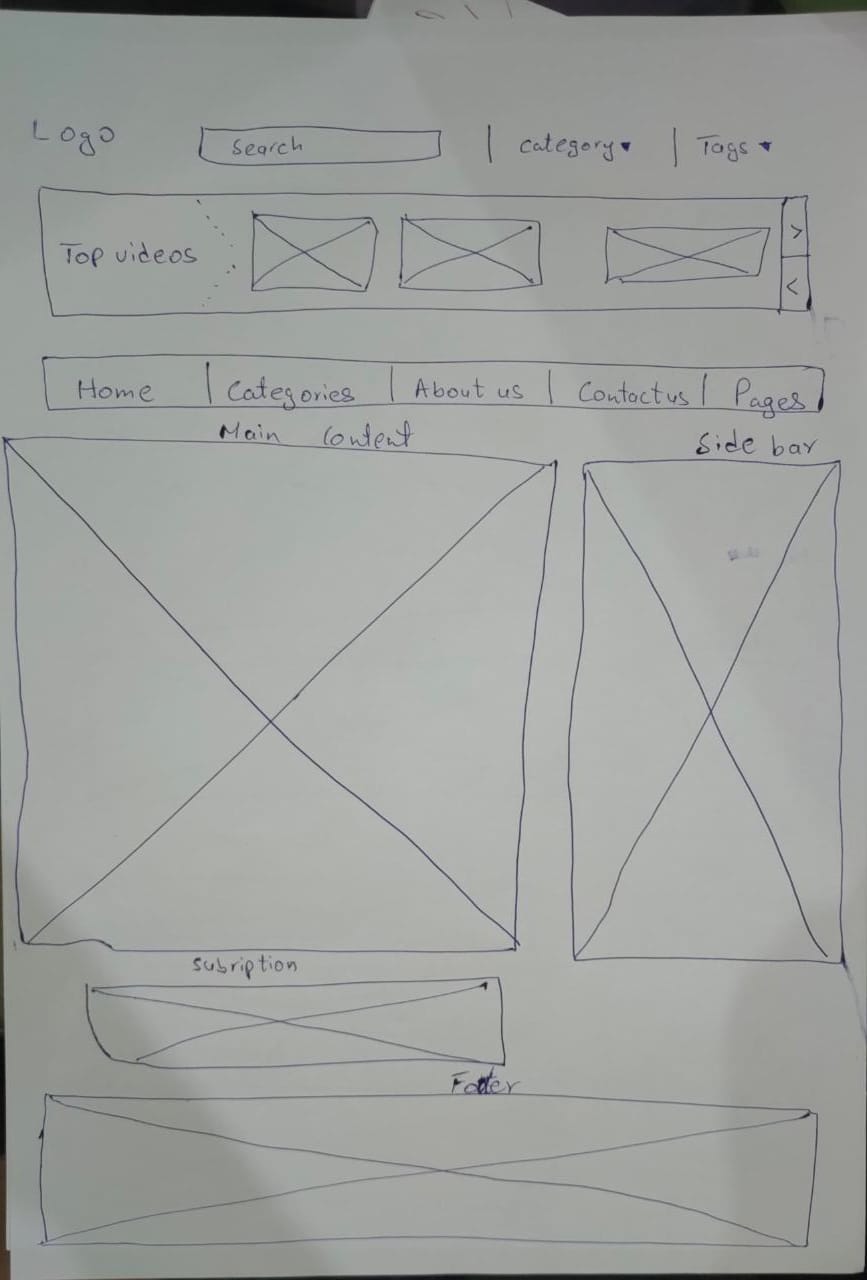 Logo
Search | Category▾ | Tags▾
Top videos
>
<
Home | Categories | About us | Contact us | Pages
Main Content
Side bar
Subription
Footer